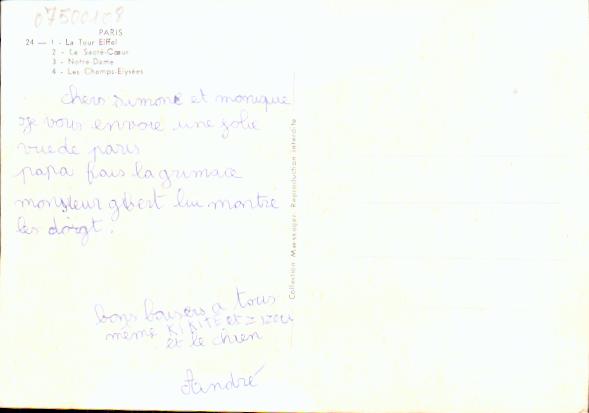 07500108
PARIS
24 — 1 - La Tour Eiffel
2 - Le Sacré-Cœur
3 - Notre-Dame
4 - Les Champs-Elysées
chers simone et monique
je vous envoie une jolie
vue de paris
papa fais la grimace
monsieur gbert lui montre
les doigt.
bons baisers a tous
même KIKITE et
et le chien
André
Collection Messager. Reproduction interdite